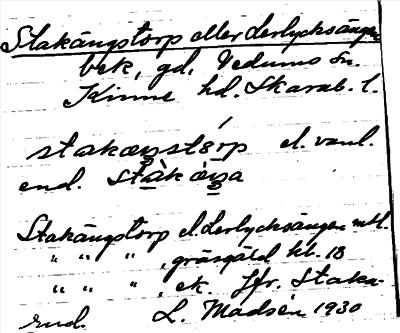 Stakängstorp eller Lerlycksängen
bek, gd, Vedums sn.
Kinne hd. Skarab. l.
stakæŋstórp el. vanl.
end. stàkæ̀ŋa
Stakängstorp el. Lerlycksängen mtl.
" " " , gräsgäld kl. 18
" " " , ek. Jfr. Staka-
rud. L. Madsén 1930